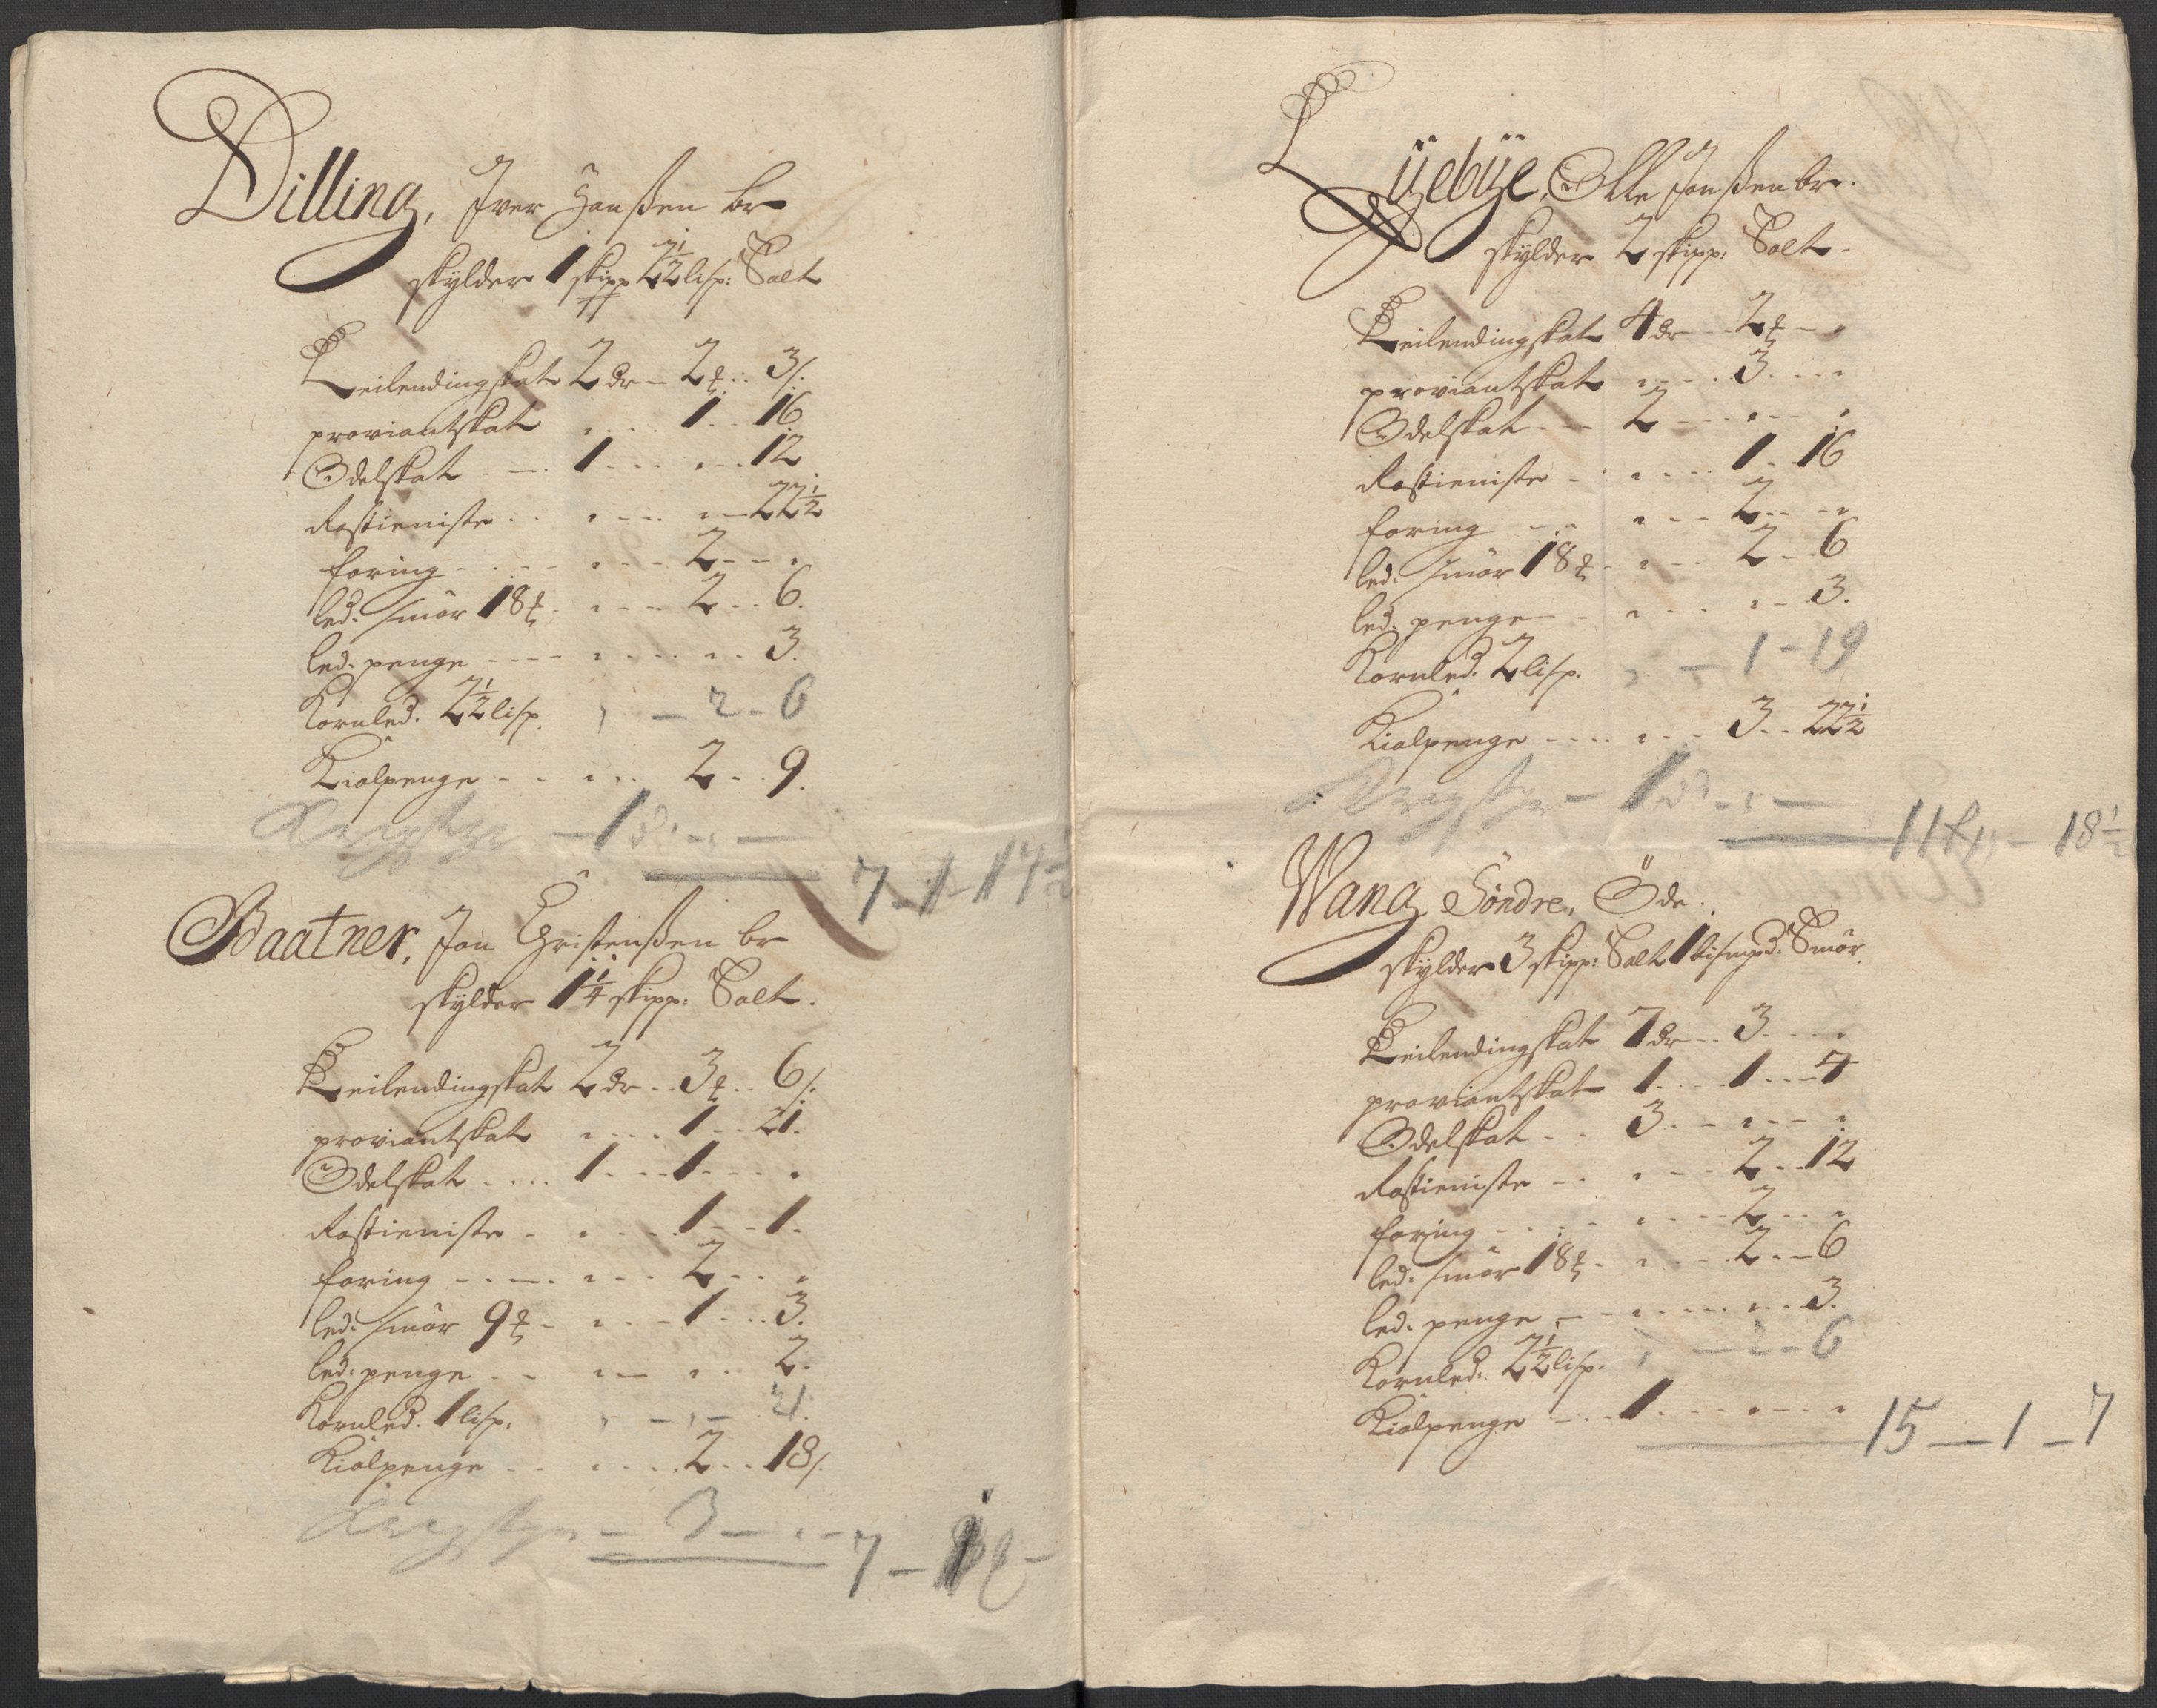 Dilling, Jver Hanßen br
skylder 1 skipp 2½ lisp: Salt
Leilendingskat 2 dr - 2 ℔ .. 3 s.
proviantskat .... 1 .. 16
Odelskat .... 1 .... 12
Rostieniste .. 22½
foring .... 2 ...
led: smör 18 ℔ .... 2 .. 6.
led. penge .... 3.
Kornled. 2½ lisp. - 2 - 6
Kiölpenge .... 2 .. 9.
- 1 dr - -
7 - 1 - 17½
Baatner, Jon Christenßen br
skylder 1¼ skipp: Salt.
Leilendingskat 2 dr .. 3 ℔ .. 6 s.
proviantskat .... 1 .. 21.
Odelskat .... 1 ... 1 ...
Rostieniste .... 1 .. 1.
foring .... 2 ...
led: smör 9 ℔ .... 1 ... 3.
led: penge .... 2.
Kornled. 1 lisp. 21.
Kiölpenge .... 2 .. 18 s.
- 3 -
7 - 1
Lÿebÿe, Olle Jonßen br.
skylder 2 skipp: Salt -
Leilendingskat 4 dr .. 2 ℔ -
proviantskat .... 3 ....
Odelskat .... 2 ....
Rostieniste .... 1 .. 16
foring .... 2 ...
led. smör 18 ℔ .... 2 .. 6
led. penge .... 3.
Kornled. 2 lisp. - 1 - 19
Kiölpenge .... 3 .. 22½
- 1 dr - -
11 - 18½
Wang Söndre, Öde.
skylder 3 skipp: Salt 1 bismpd: Smör.
Leilendingskat 7 dr .. 3 ....
proviantskat 1 ... 1 ... 4
Odelskat .. 3 ....
Rostieniste .... 2 .. 12
foring .... 2 ...
led. smör 18 ℔ .... 2 .. 6
led. penge .... 3.
Kornled. 2½ lisp. - 2 - 6
Kiölpenge .... 1 ....
15 - 1 - 7